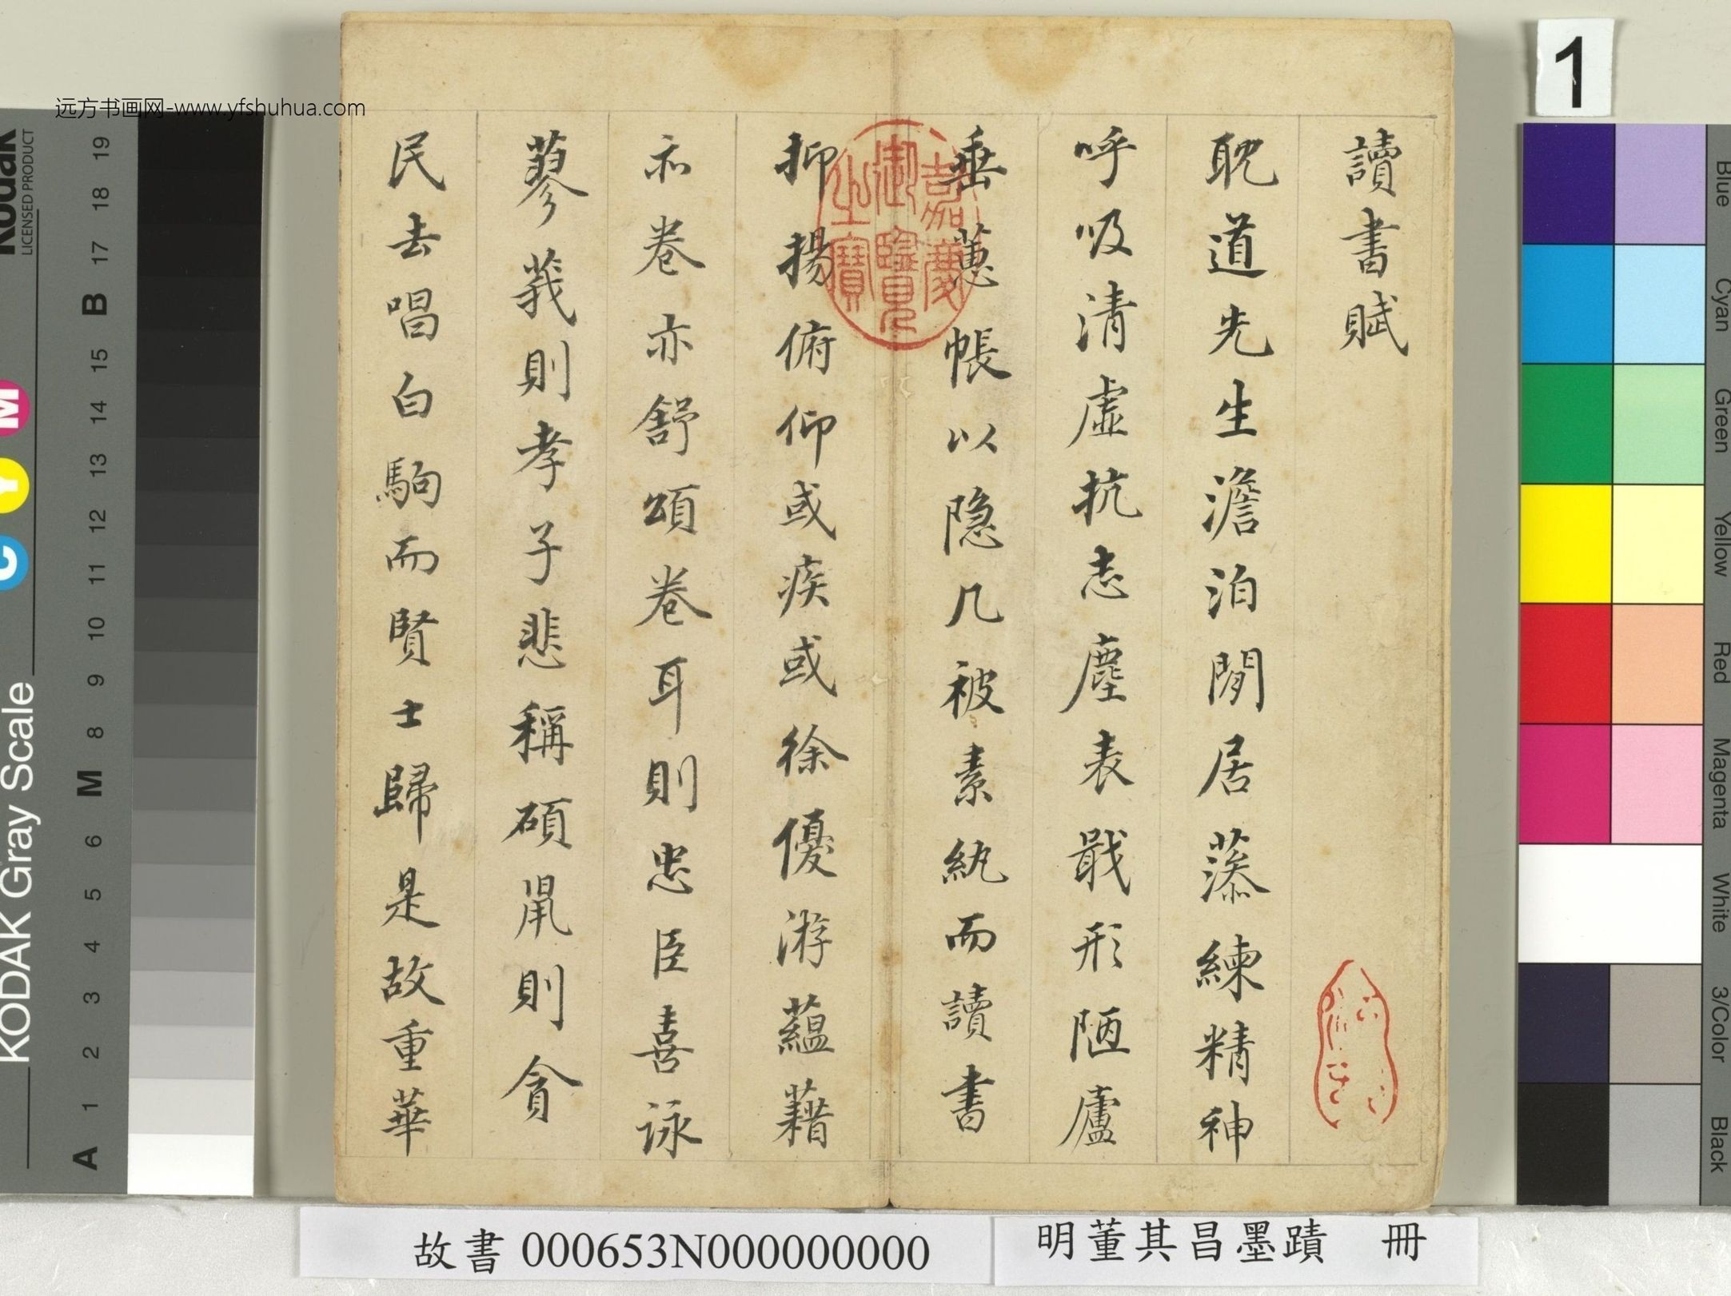 讀書賦
耽道先生澹泊閒居蓚練精神
呼吸清虛抗志塵表戢形陋廬
垂蕙帳以隐几被素紈而讀書
抑揚俯仰或疾或徐優游蘊藉
亦卷亦舒頌卷耳則忠臣喜詠
蓼莪則孝子悲稱碩鼠則貪
民去唱白駒而賢士歸是故重華
嘉慶
御覽
之寶
远方书画网-www.yfshuhua.com
1
故書 000653N000000000
明董其昌墨蹟 冊
KODAK Gray Scale
Kodak
LICENSED PRODUCT
C Y M
A 1 2 3 4 5 6 M 8 9 10 11 12 13 14 15 B 17 18 19
Blue
Cyan
Green
Yellow
Red
Magenta
White
3/Color
Black